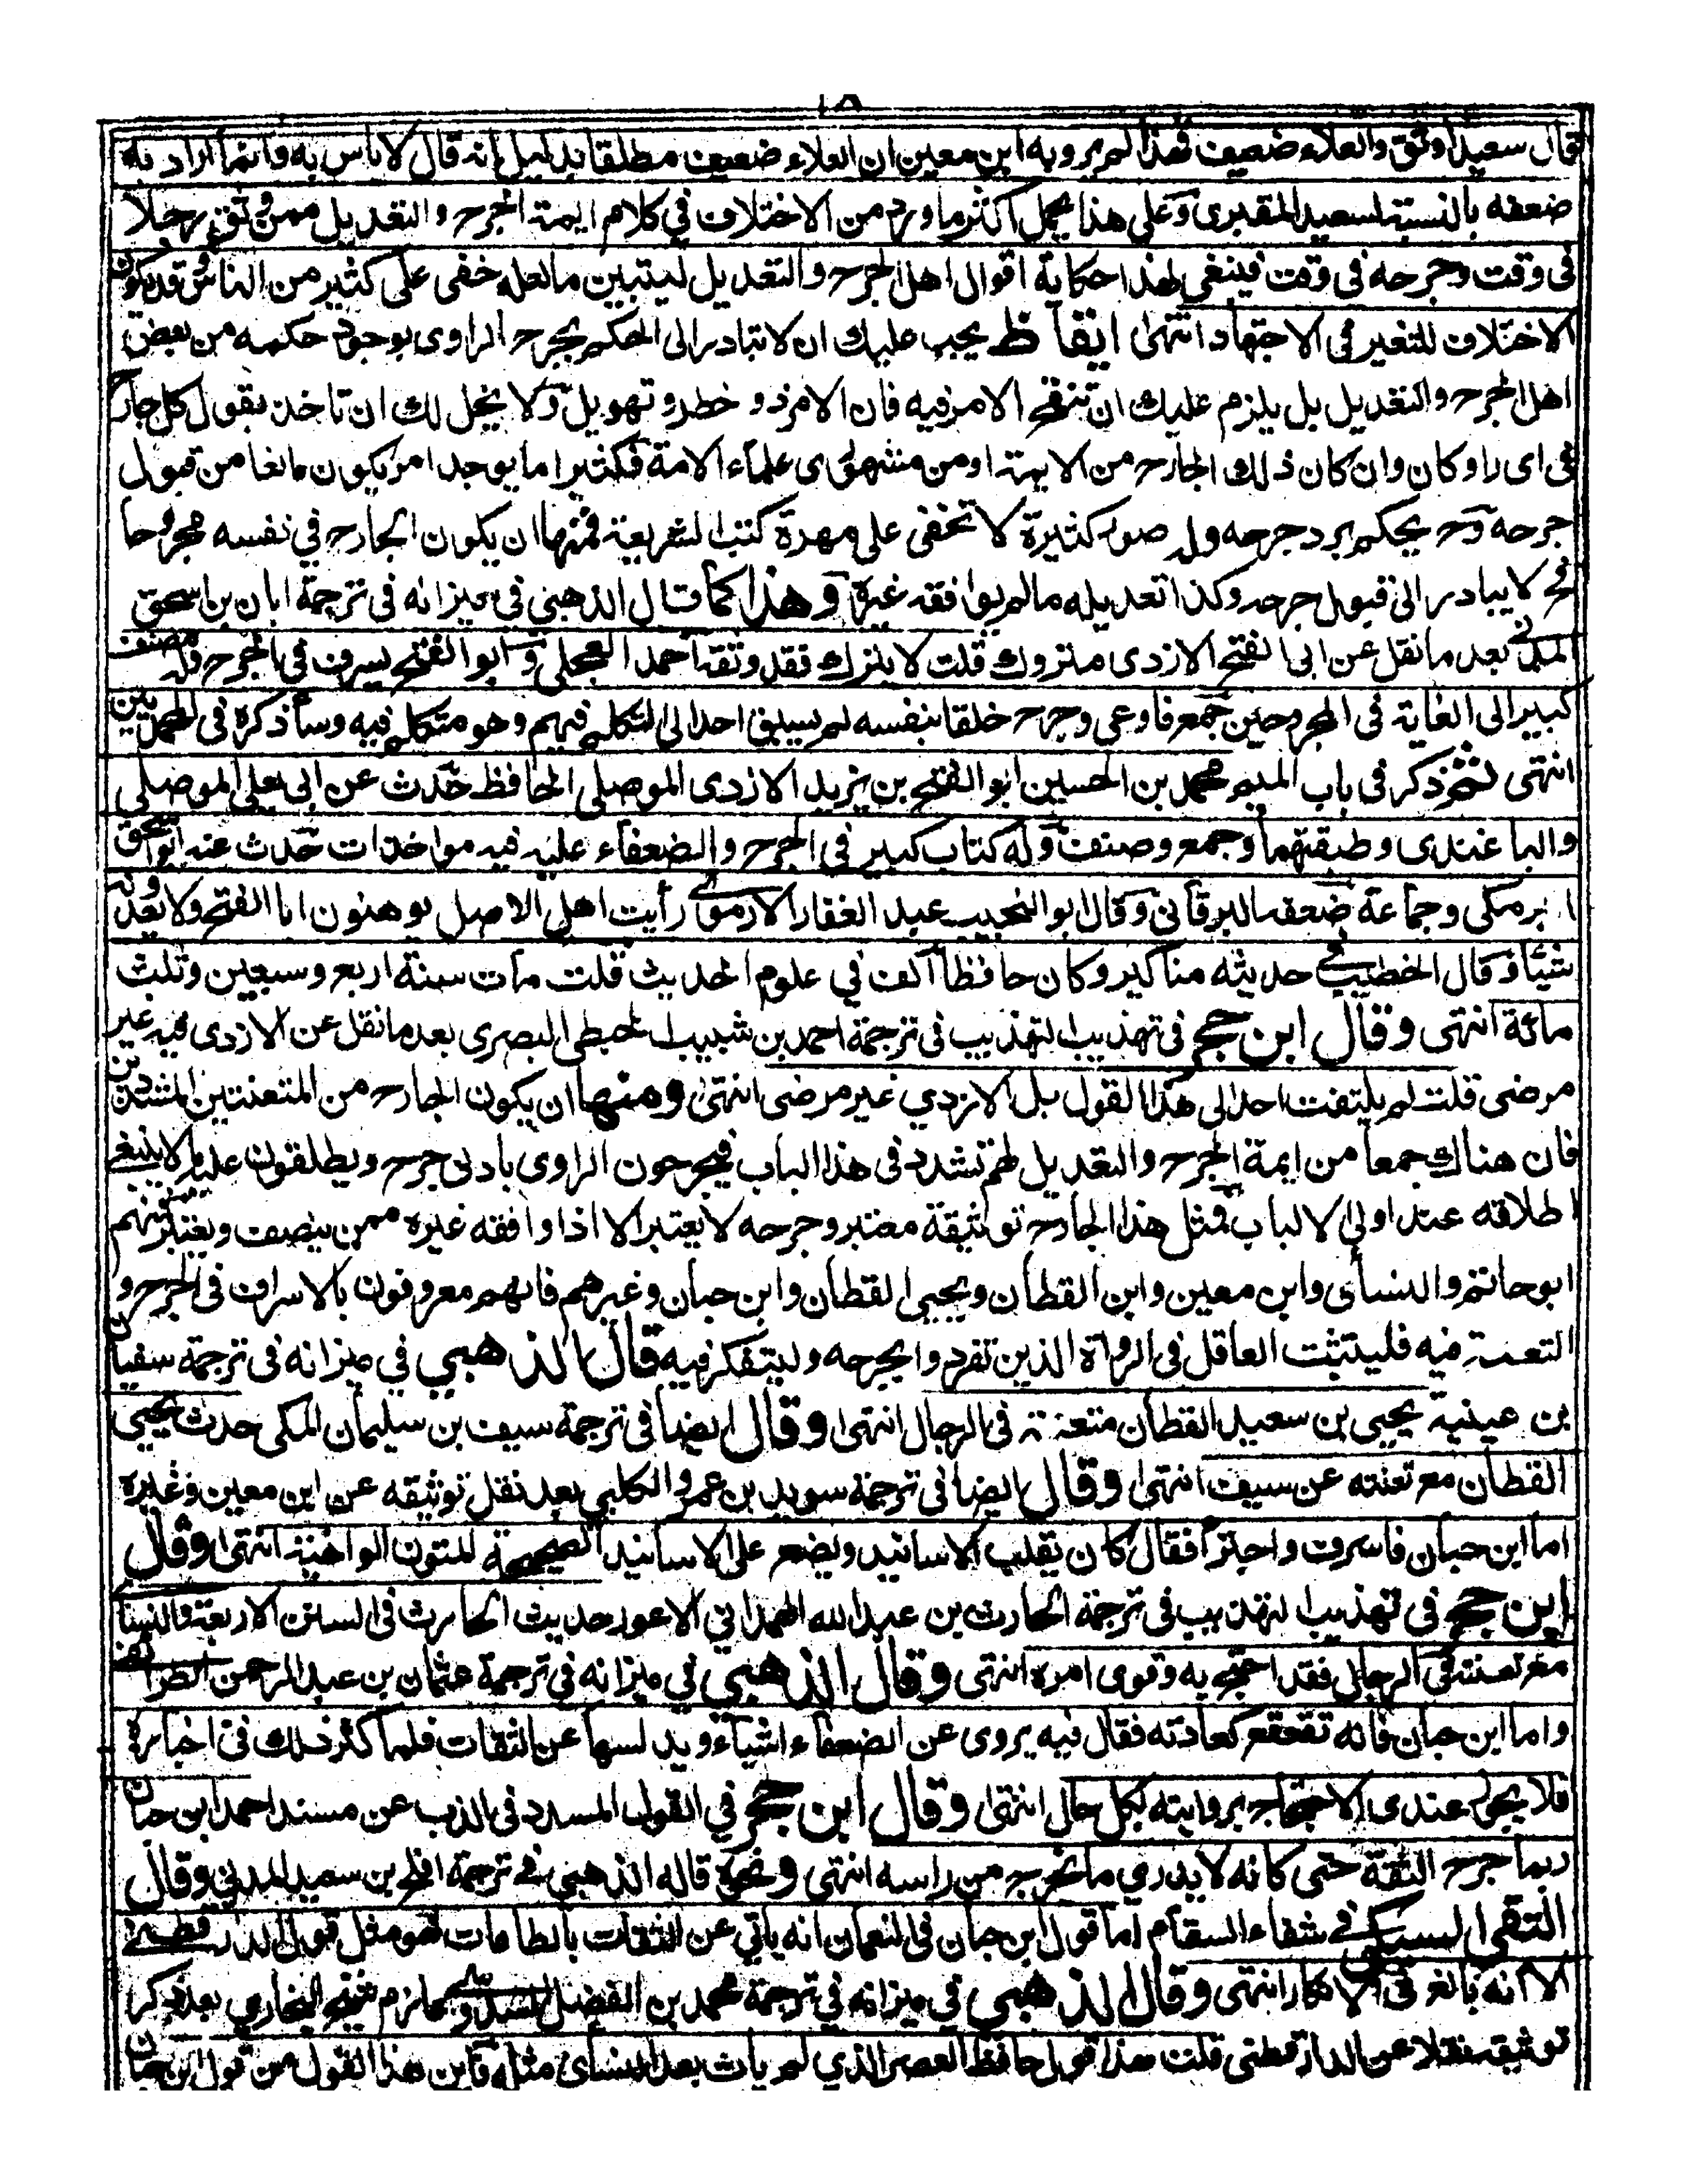 ١٨
فقال سعيد اوثق والعلاء ضعيف فهذا لم يرد به ابن معين ان العلاء ضعيف مطلقا بدليل انه قال لا باس به وانما اراد به
ضعفه بالنسبة لسعيد المقبرى وعلى هذا يحمل اكثر ما ورد من الاختلاف في كلام ايمة الجرح والتعديل ممن وثق رجلا
فى وقت وجرحه فى وقت فينبغى لهذا حكاية اقوال اهل الجرح والتعديل ليتبين ما لعله خفى على كثير من الناس وقد يكون
الاختلاف للتغير فى الاجتهاد انتهى ايقاظ يجب عليك ان لا تبادر الى الحكم بجرح الراوى بوجود حكمه من بعض
اهل الجرح والتعديل بل يلزم عليك ان تنقح الامر فيه فان الامر ذو خطر وتهويل ولا يحل لك ان تاخذ بقول كل جارح
فى اى راو كان وان كان ذلك الجارح من الايمة او من مشهورى علماء الامة فكثيرا ما يوجد امر يكون مانعا من قبول
جرحه وح يحكم برد جرحه وله صور كثيرة لا تخفى على مهرة كتب الشريعة فمنها ان يكون الجارح في نفسه مجروحا
فح لا يبادر الى قبول جرحه وكذا تعديله ما لم يوافقه غيره وهذا كما قال الذهبي في ميزانه فى ترجمة ابان بن اسحق
المدنى بعد ما نقل عن ابى الفتح الازدى متروك قلت لا يترك فقد وثقه احمد العجلي وابو الفتح يسرف فى الجرح وله مصنف
كبير الى الغاية فى المجروحين جمع فاوعى وجرح خلقا بنفسه لم يسبق احد الى التكلم فيهم وهو متكلم فيه وسأذكره فى المحمدين
انتهى ثم ذكر فى باب الميم محمد بن الحسين ابو الفتح بن يزيد الازدى الموصلي الحافظ حدث عن ابى يعلى الموصلي
والباغندى وطبقتهما وجمع وصنف وله كتاب كبير في الجرح والضعفاء عليه فيه مواخذات حدث عنه ابو اسحق
البرمكى وجماعة ضعفه البرقانى وقال ابو النجيب عبد الغفار الارموى رأيت اهل الاصل يوهنون ابا الفتح ولا يعدونه
شيئا وقال الخطيب في حديثه مناكير وكان حافظا الف في علوم الحديث قلت مات سنة اربع وسبعين وثلث
مائة انتهى وقال ابن حجر فى تهذيب التهذيب فى ترجمة احمد بن شبيب الحبطى البصرى بعد ما نقل عن الازدى فيه غير
مرضى قلت لم يلتفت احد الى هذا القول بل الازدي غير مرضى انتهى ومنها ان يكون الجارح من المتعنتين المشددين
فان هناك جمعا من ايمة الجرح والتعديل لهم تشدد فى هذا الباب فيجرحون الراوى بادنى جرح ويطلقون عليه ما لا ينبغى
اطلاقه عند اولى الالباب فمثل هذا الجارح توثيقه معتبر وجرحه لا يعتبر الا اذا وافقه غيره ممن ينصف ويعتبر فمنهم
ابو حاتم والنسائى وابن معين وابن القطان ويحيى القطان وابن حبان وغيرهم فانهم معروفون بالاسراف فى الجرح و
التعنت فيه فليتثبت العاقل فى الرواة الذين تفردوا بجرحه وليتفكر فيه قال الذهبي في ميزانه فى ترجمة سفيان
بن عيينة يحيى بن سعيد القطان متعنت فى الرجال انتهى وقال ايضا فى ترجمة سيف بن سليمان المكى حدث يحيى
القطان مع تعنته عن سيف انتهى وقال ايضا فى ترجمة سويد بن عمرو الكلبي بعد نقل توثيقه عن ابن معين وغيره
اما ابن حبان فاسرف واجترأ فقال كان يقلب الاسانيد ويضع على الاسانيد الصحيحة المتون الواهية انتهى وقال
ابن حجر فى تهذيب التهذيب فى ترجمة الحارث بن عبد الله الهمدانى الاعور حديث الحارث فى السنن الاربعة والنسائى
مع تعنته فى الرجال فقد احتج به وقوى امره انتهى وقال الذهبي في ميزانه في ترجمة عثمان بن عبد الرحمن الطرائفى
واما ابن حبان فانه تقعقع كعادته فقال فيه يروى عن الضعفاء اشياء ويدلسها عن الثقات فلما كثر ذلك فى اخباره
فلا يجوز عندى الاحتجاج بروايته بكل حال انتهى وقال ابن حجر في القول المسدد فى الذب عن مسند احمد ابن حبان
ربما جرح الثقة حتى كانه لا يدري ما يخرج من راسه انتهى ونحوه قاله الذهبي في ترجمة افلح بن سعيد المدنى وقال
التقى السبكى في شفاء السقام اما قول ابن حبان فى النعمان انه ياتي عن الثقات بالطامات فهو مثل قول الدارقطنى
الا انه بالغ فى الانكار انتهى وقال الذهبي في ميزانه في ترجمة محمد بن الفضل السدوسى عارم شيخ البخارى بعد ذكر
توثيقه نقلا عن الدارقطنى قلت هذا قول حافظ العصر الذي لم يات بعد النسائى مثله فاين هذا القول من قول ابن حبان